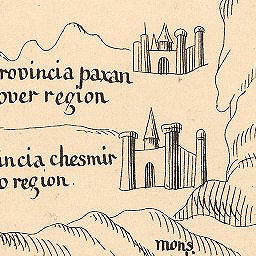 rovincia paxan
over region
incia chesmir
o region.
mons